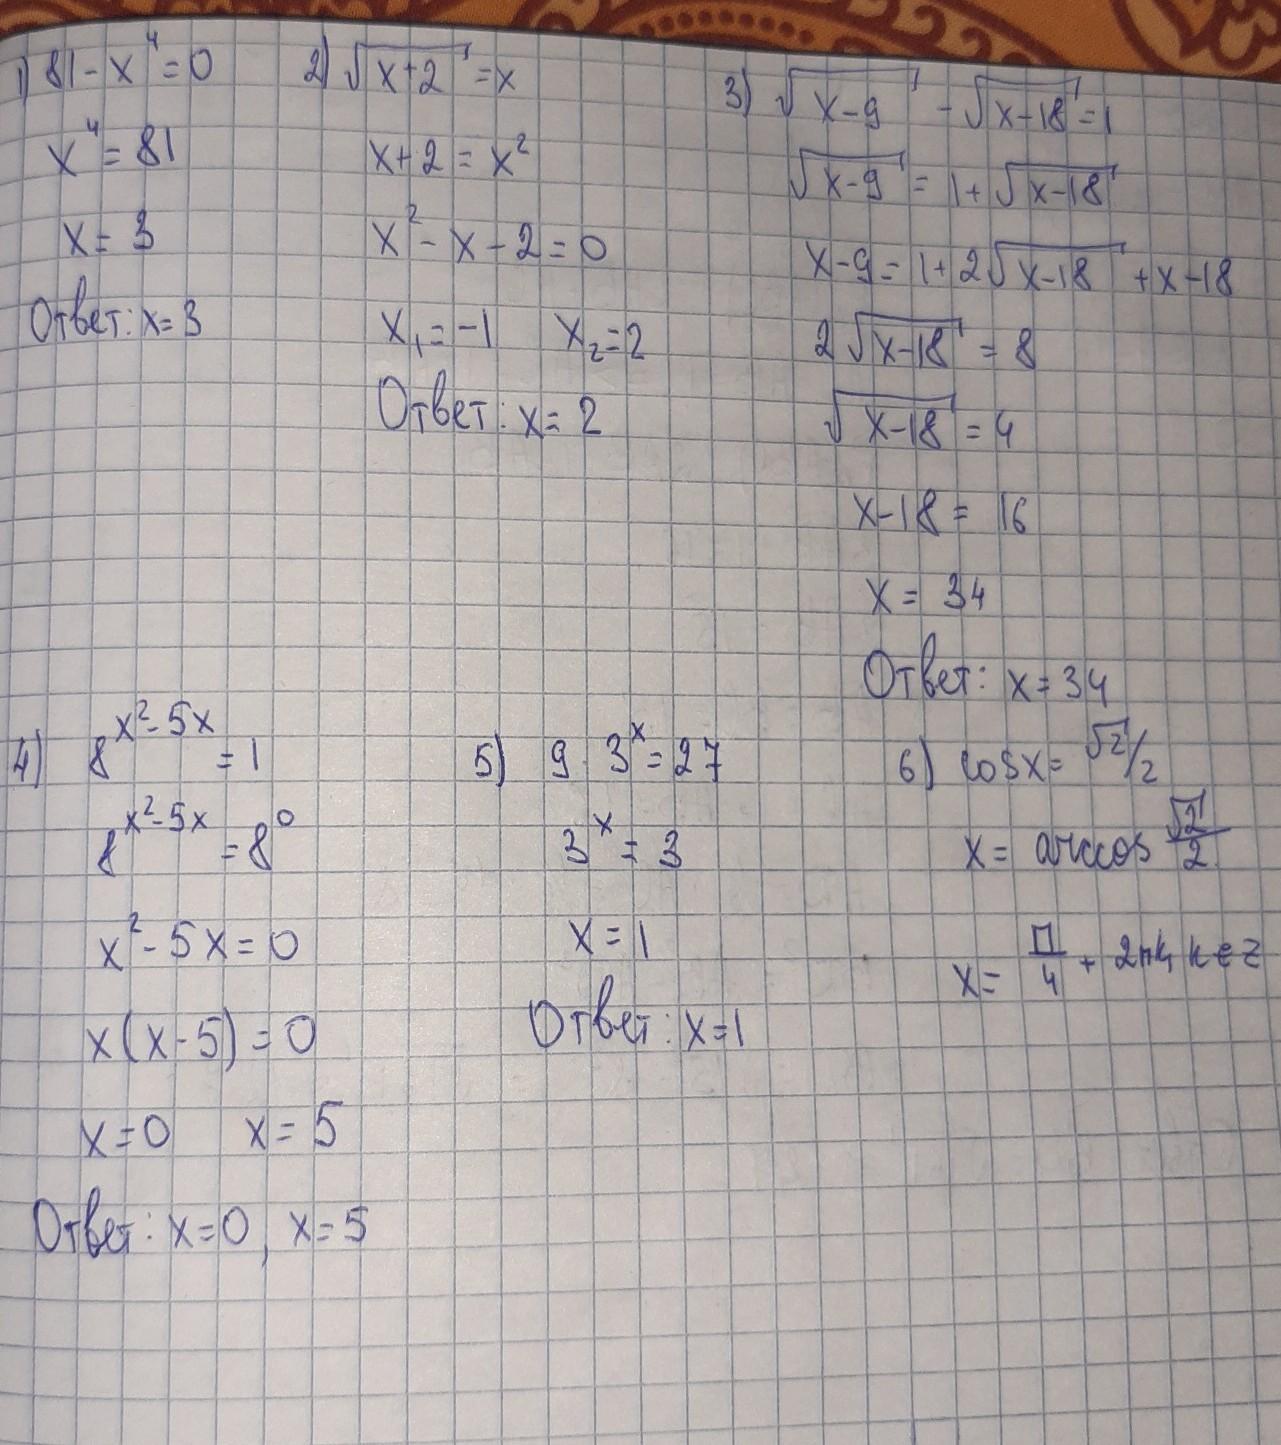 1) 81 - x⁴ = 0
x⁴ = 81
x = 3
Ответ: x = 3
2) √(x+2) = x
x+2 = x²
x² - x - 2 = 0
x₁ = -1 x₂ = 2
Ответ: x = 2
3) √(x-9) - √(x-18) = 1
√(x-9) = 1 + √(x-18)
x-9 = 1 + 2√(x-18) + x-18
2√(x-18) = 8
√(x-18) = 4
x-18 = 16
x = 34
Ответ: x = 34
4) 8^(x²-5x) = 1
8^(x²-5x) = 8⁰
x² - 5x = 0
x(x-5) = 0
x = 0 x = 5
Ответ: x = 0, x = 5
5) 9 · 3ˣ = 27
3ˣ = 3
x = 1
Ответ: x = 1
6) cos x = √2/2
x = arccos √2/2
x = П/4 + 2πk, k ∈ z